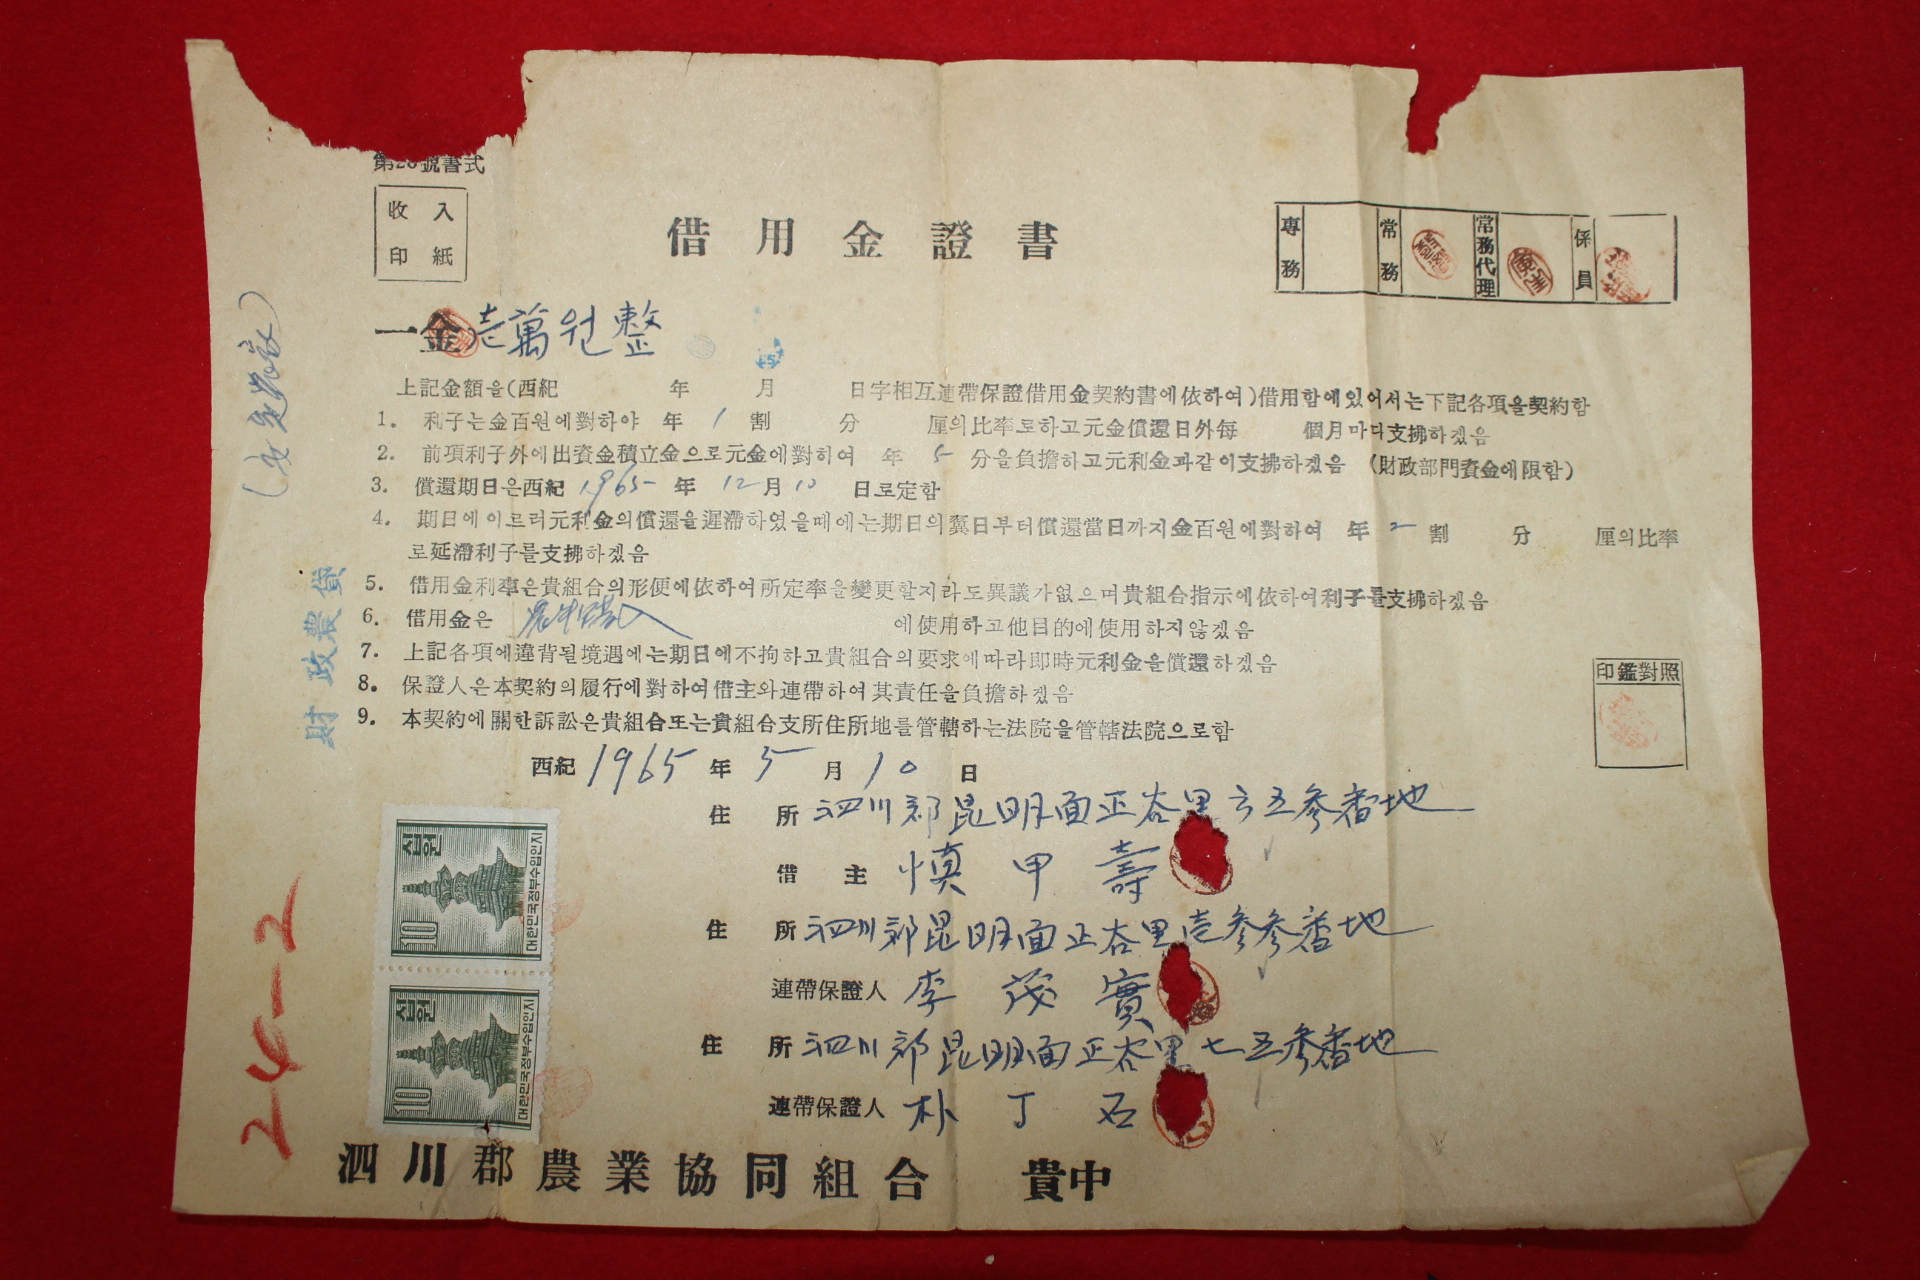 第26號書式
收入
印紙
借用金證書
專務
常務
常務代理
係員
一金壱萬원整
上記金額을(西紀 年 月 日字相互連帶保證借用金契約書에依하여)借用함에있어서는下記各項을契約함
1. 利子는金百원에對하야 年 1 割 分 厘의比率로하고元金償還日外每 個月마다支拂하겠음
2. 前項利子外에出資金積立金으로元金에對하여 年 5 分을負擔하고元利金과같이支拂하겠음 (財政部門資金에限함)
3. 償還期日은西紀 1965 年 12 月 10 日로定함
4. 期日에이르러元利金의償還을遲滯하였을때에는期日의翼日부터償還當日까지金百원에對하여 年 2 割 分 厘의比率
로延滯利子를支拂하겠음
5. 借用金利率은貴組合의形便에依하여所定率을變更할지라도異議가없으며貴組合指示에依하여利子를支拂하겠음
6. 借用金은 農牛購入 에使用하고他目的에使用하지않겠음
7. 上記各項에違背될境遇에는期日에不拘하고貴組合의要求에따라即時元利金을償還하겠음
8. 保證人은本契約의履行에對하여借主와連帶하여其責任을負擔하겠음
9. 本契約에關한訴訟은貴組合또는貴組合支所住所地를管轄하는法院을管轄法院으로함
印鑑對照
財政農貸
西紀 1965 年 5 月 10 日
住所 泗川郡昆明面正谷里六五參番地
借主 愼甲壽
住所 泗川郡昆明面正谷里壱參參番地
連帶保證人 李茂實
住所 泗川郡昆明面正谷里七五參番地
連帶保證人 朴丁石
십원
10
대한민국정부수입인지
십원
10
대한민국정부수입인지
泗川郡農業協同組合 貴中